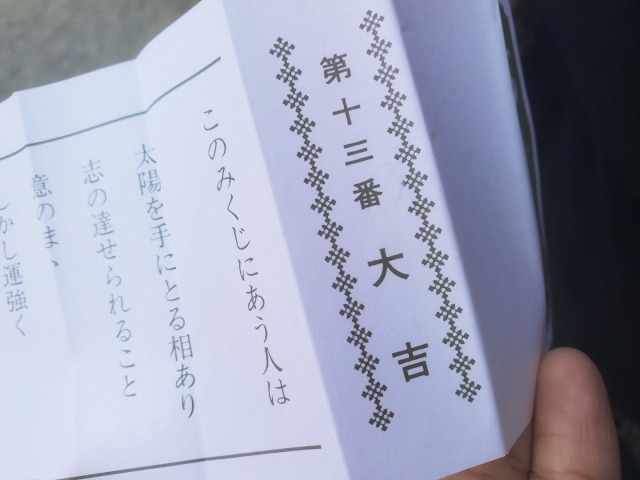 第十三番 大吉
このみくじにあう人は
太陽を手にとる相あり
志の達せられること
意のまゝ
かし運強く